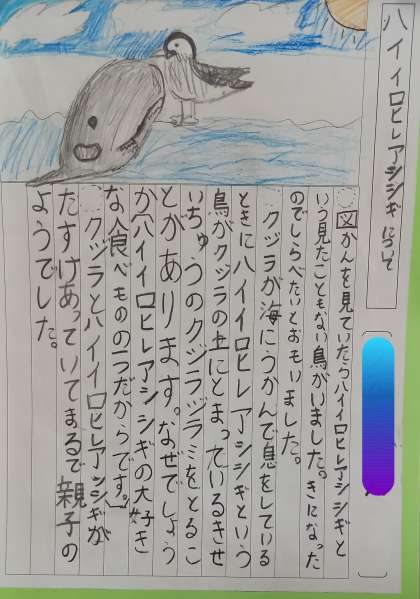 ハイイロヒレアシシギについて
図かんを見ていたらハイイロヒレアシシギと
いう見たこともない鳥がいました。きになった
のでしらべたいとおもいました。
クジラが海にうかんで息をしている
ときにハイイロヒレアシシギという
鳥がクジラの上にとまっているきせ
いちゅうのクジラジラミをとるこ
とがあります。なぜでしょう
か。ハイイロヒレアシシギの大好き
な食べものの一つだからです。
クジラとハイイロヒレアシシギが
たすけあっていてまるで親子の
ようでした。